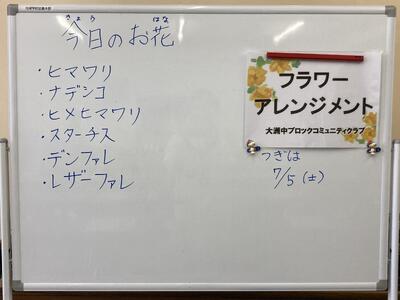 今日のお花
きょう はな
・ヒマワリ
・ナデシコ
・ヒメヒマワリ
・スターチス
・デンファレ
・レザーファレ
フラワー
アレンジメント
大洲中ブロックコミュニティクラブ
つぎは
7/5(土)